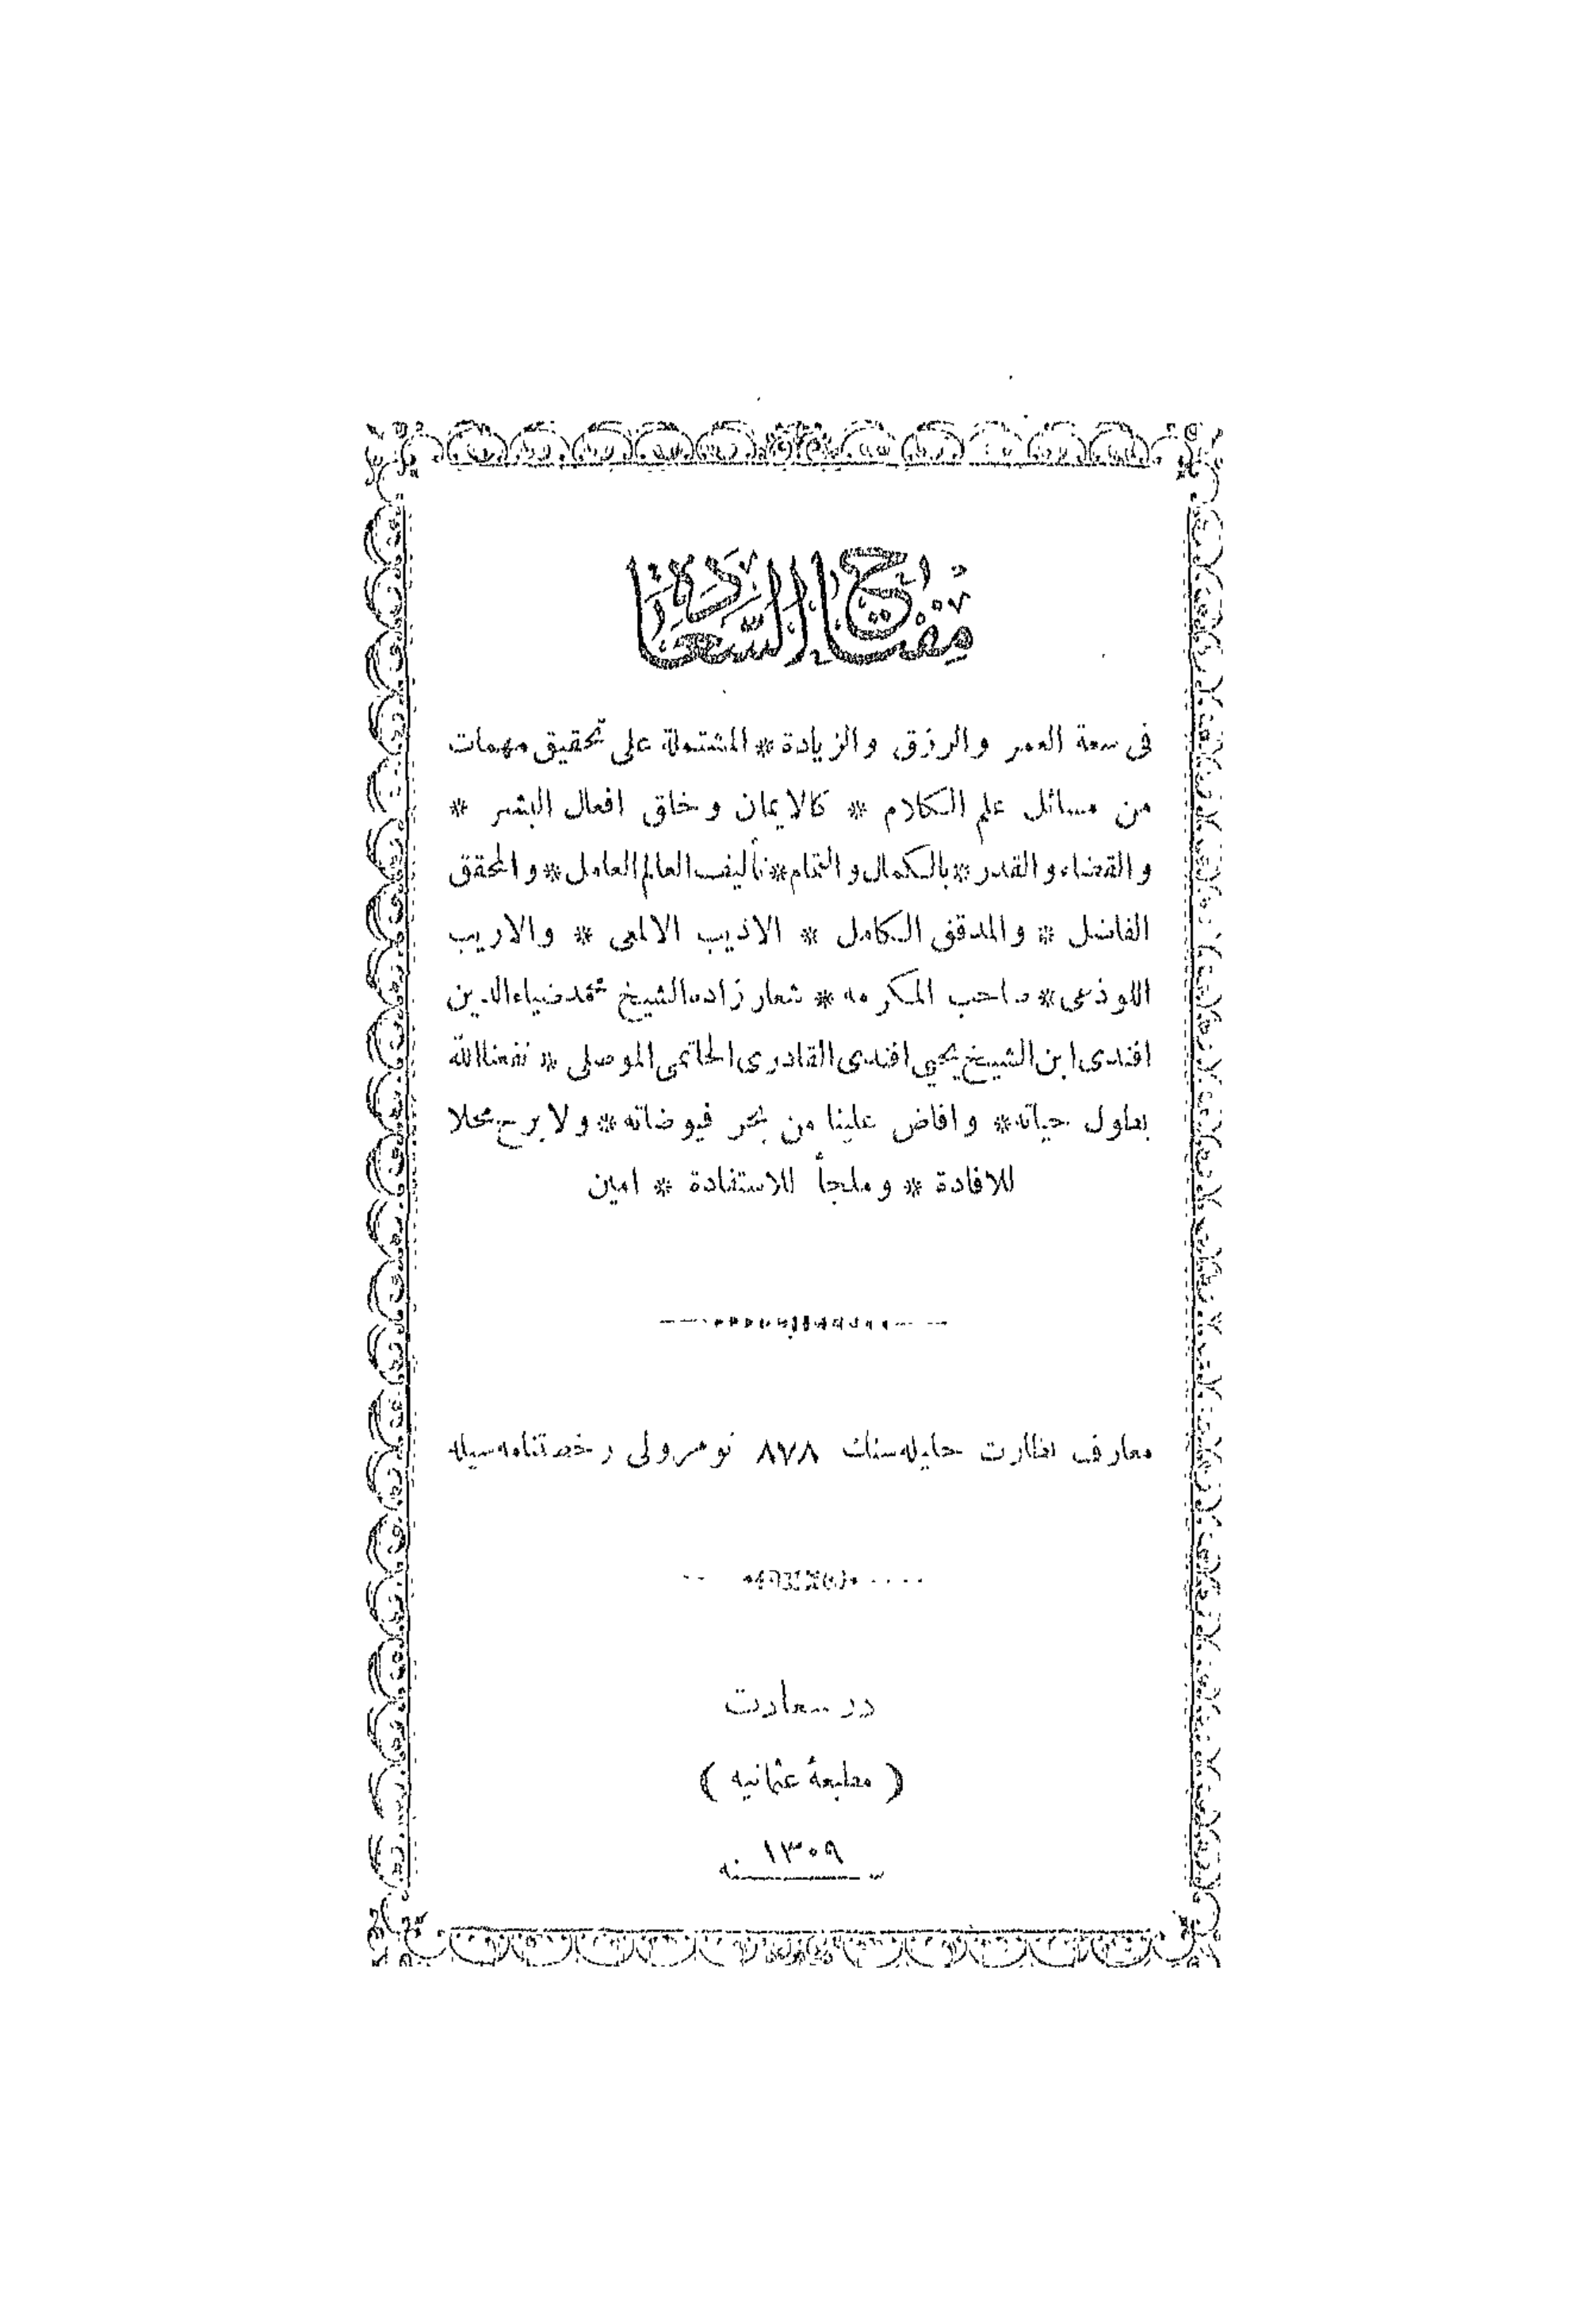 مفتاح السعادة
فى سعة العمر والرزق والزيادة * المشتملة على تحقيق مهمات
من مسائل علم الكلام * كالايمان وخلق افعال البشر *
والقضاء والقدر * بالكمال والتمام * تأليف العالم العامل * والمحقق
الفاضل * والمدقق الكامل * الاديب الالمعى * والاريب
اللوذعى * صاحب المكرمه * شعار زاده الشيخ محمد ضياء الدين
افندى ابن الشيخ يحيي افندى القادرى الحاتمى الموصلى * نفعنا الله
بطول حياته * وافاض علينا من بحر فيوضاته * ولا برح محلا
للافادة * وملجأ للاستفادة * امين
معارف نظارت جليله سنك ٨٧٨ نومرولى رخصتنامه سيله
در سعادت
( مطبعهٔ عثمانيه )
١٣٠٩
سنه